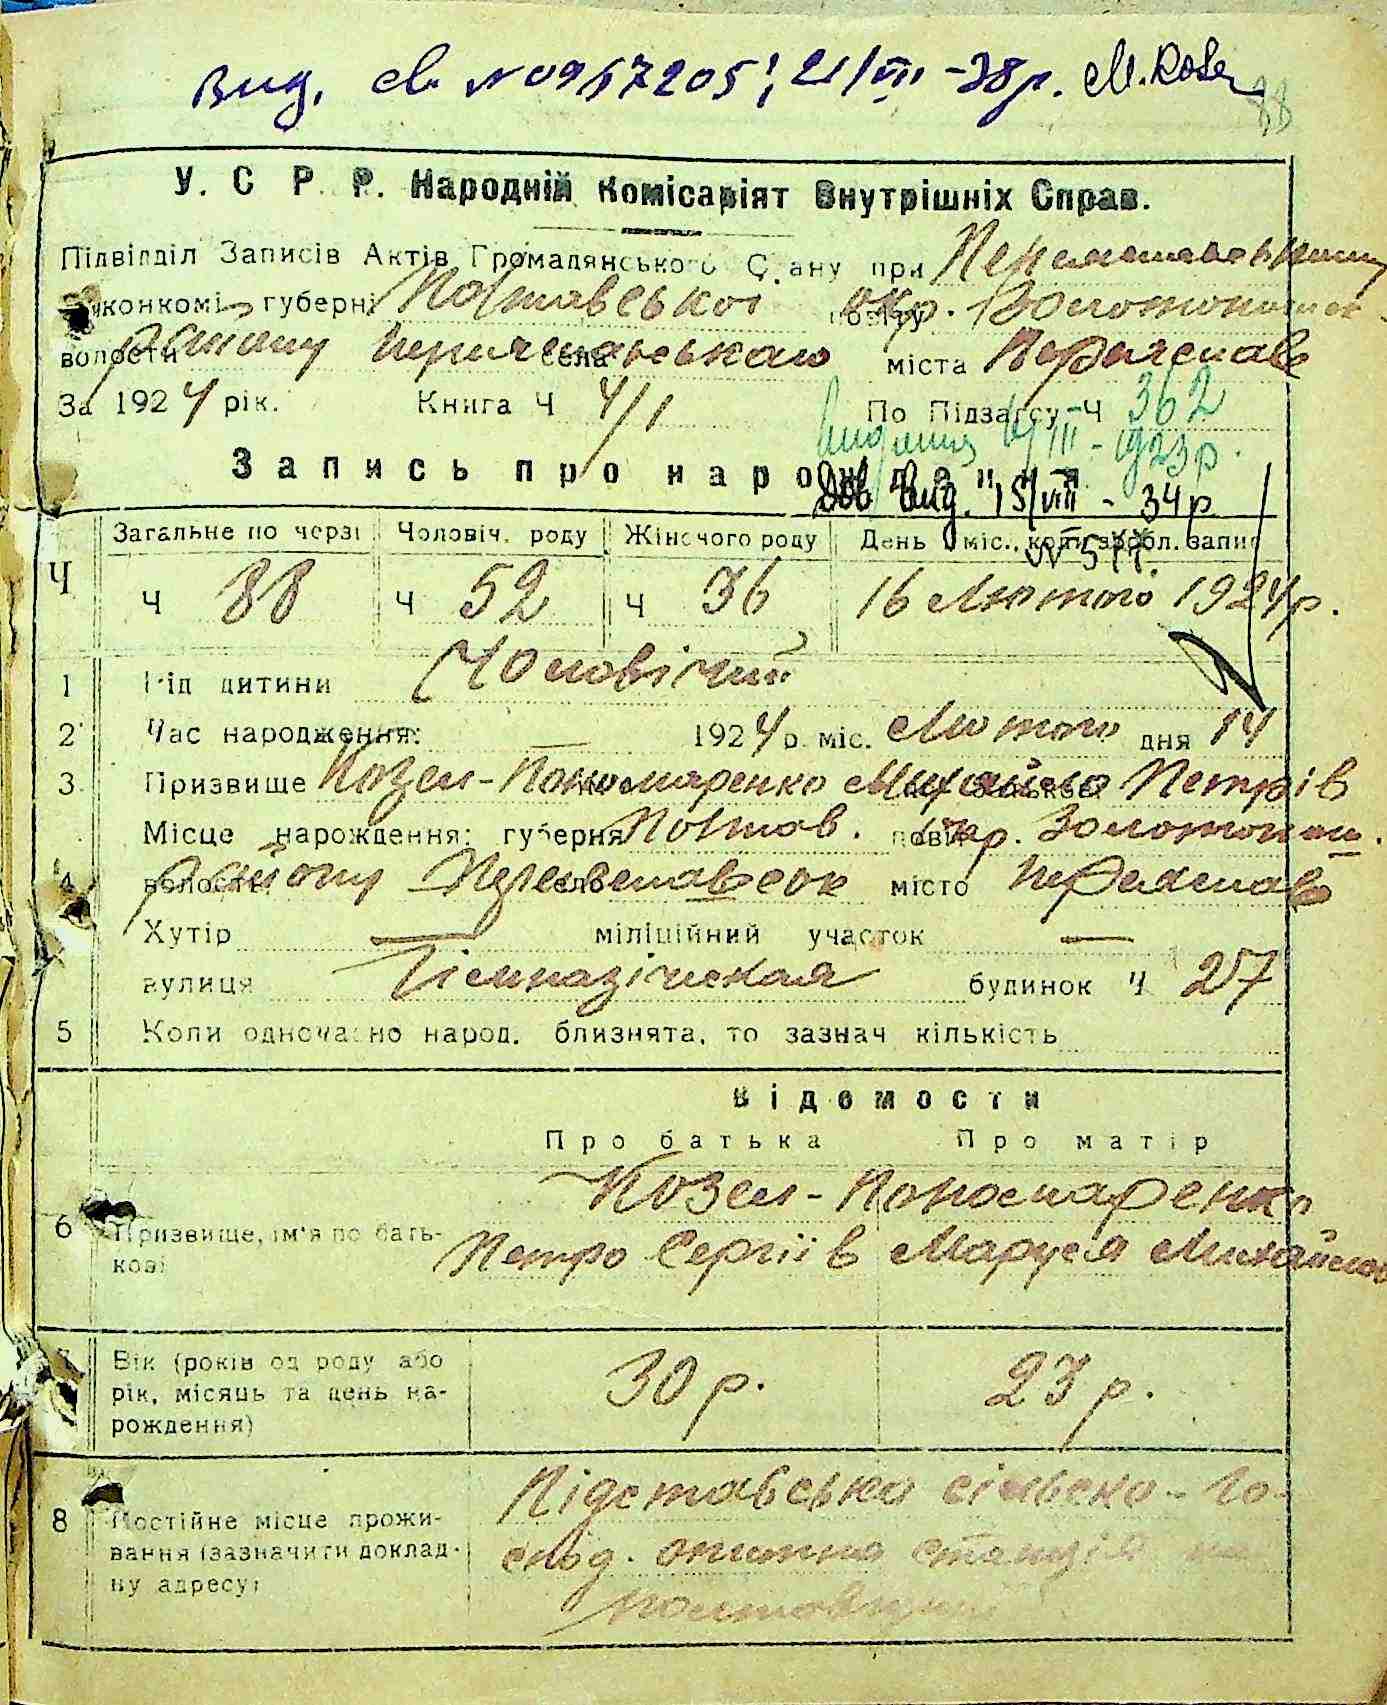 Вид. св. N 0967205; 21/VIII -38р.
88
У. С Р. Р. Народній Комісаріят Внутрішніх Справ.
Підвідділ Записів Актів Громадянського Стану при
конкомі губерні Полтавської окр. Золотоніськ.
волости району Переяславського села міста Переяслав
За 1924 рік. Книга Ч 4/1 По Підзагсу Ч 362
III - 1923 р.
Запись про народження
вид. 15/VIII - 34 р.
Загальне по черзі Чоловіч. роду Жіночого роду День і міс., коли зробл. запис
N 577.
Ч Ч 88 Ч 52 Ч 36 16 Лютого 1924 р.
1 Рід дитини Чоловічий
2 Час народження: — 1924 р. міс. Лютого дня 14
3 Призвище Козел-Пономаренко Михайло Петрів
Місце народження: губерня Полтав. повіт окр. Золотонош.
4 волость району Переяславськ село місто Переяслав
Хутір — міліційний участок —
вулиця Гімназіческая будинок Ч 27
5 Коли одночасно народ. близнята, то зазнач кількість
Відомости
Про батька Про матір
Козел-Пономаренко
6 Призвище, ім'я по бать-
кові
Петро Сергіїв Маруся Михайлов
7 Вік (років од роду або
рік, місяць та день на-
рождення)
30 р. 23 р.
8 Постійне місце прожи-
вання (зазначити доклад-
ну адресу)
Підставська сільско-го-
спод. опитна станція на